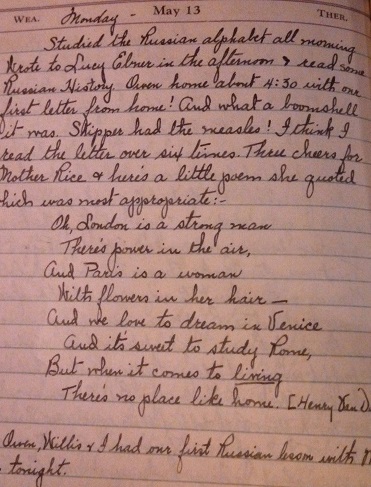 WEA. Monday - May 13 THER.
Studied the Russian alphabet all morning
Wrote to Lucy Elmer in the afternoon & read some
Russian History. Owen home about 4:30 with our
first letter from home! And what a boomshell
it was. Skipper had the measles! I think I
read the letter over six times. Three cheers for
Mother Rice & here's a little poem she quoted
which was most appropriate:-
Oh, London is a strong man
There's power in the air,
And Paris is a woman
With flowers in her hair —
And we love to dream in Venice
And its sweet to study Rome,
But when it comes to living
There's no place like home. [Henry Van
Owen, Willis & I had our first Russian lesson with
tonight.